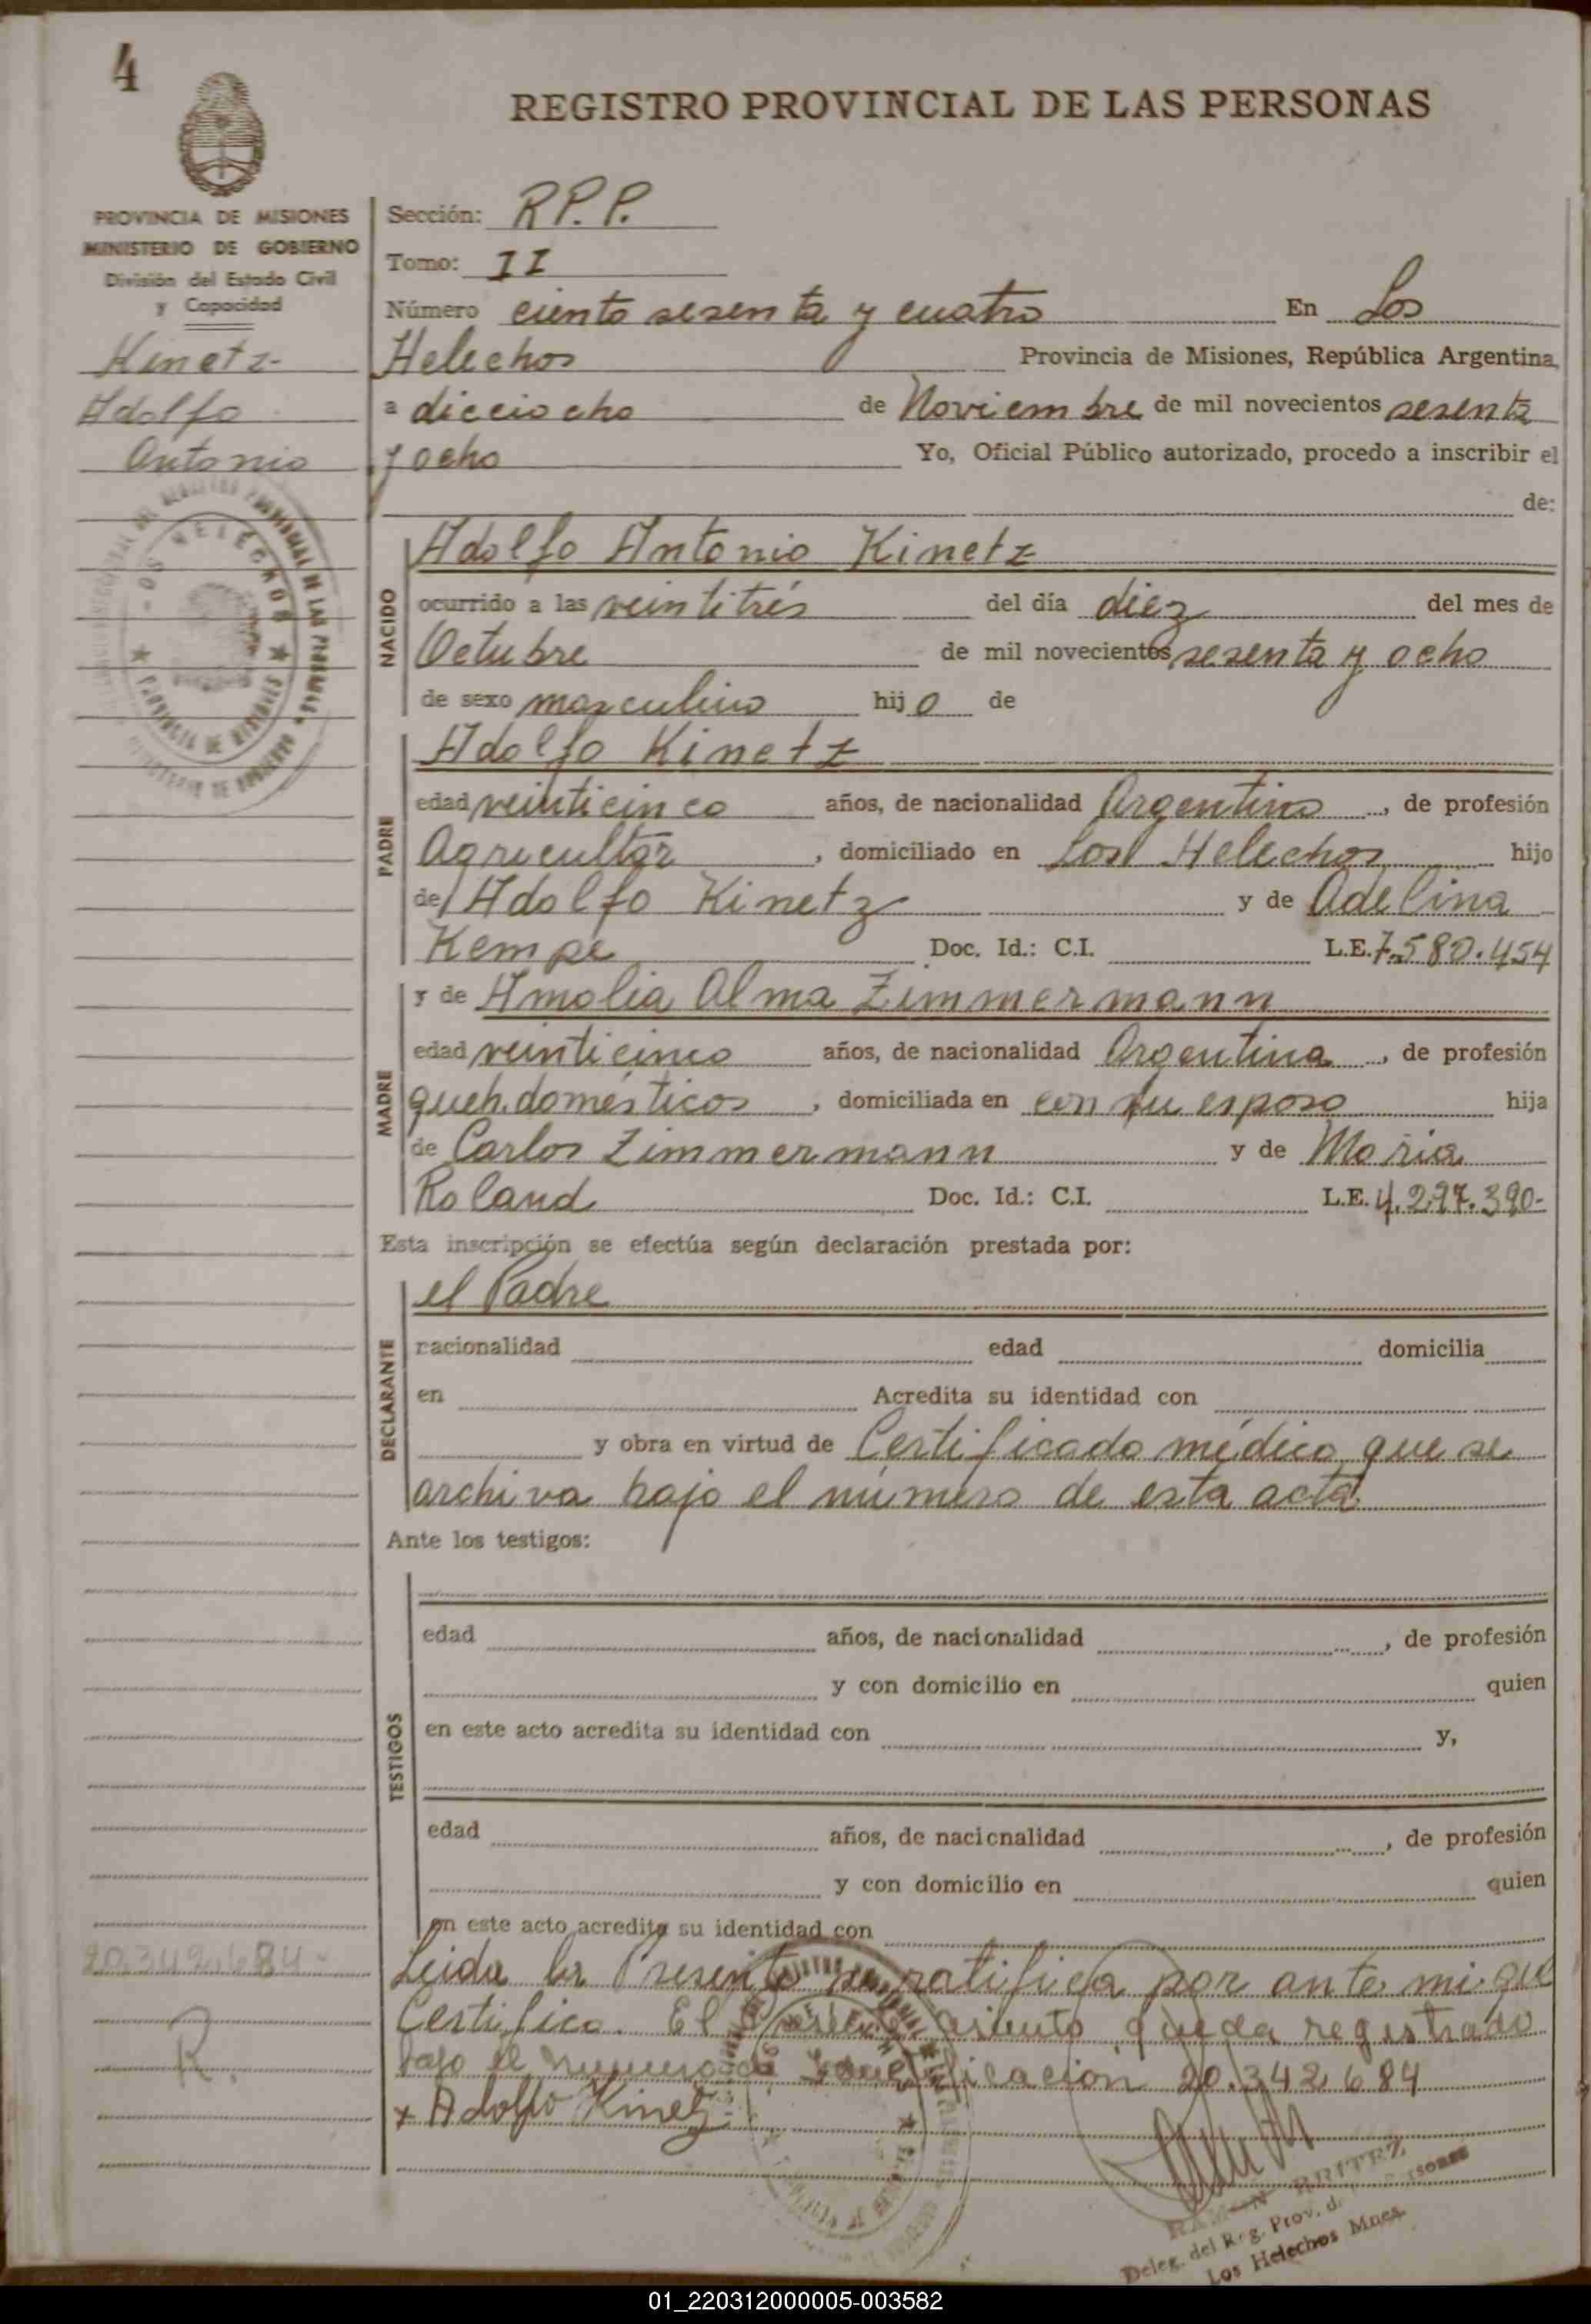 4
REGISTRO PROVINCIAL DE LAS PERSONAS
PROVINCIA DE MISIONES
MINISTERIO DE GOBIERNO
División del Estado Civil
y Capacidad
Kinetz-
Adolfo
Antonio
Sección: R.P.P.
Tomo: II
Número ciento sesenta y cuatro En Los
Helechos Provincia de Misiones, República Argentina,
a dieciocho de Noviembre de mil novecientos sesenta
y ocho Yo, Oficial Público autorizado, procedo a inscribir el
de:
NACIDO
Adolfo Antonio Kinetz
ocurrido a las veintitrés del día diez del mes de
Octubre de mil novecientos sesenta y ocho
de sexo masculino hijo de
PADRE
Adolfo Kinetz
edad veinticinco años, de nacionalidad Argentino, de profesión
Agricultor, domiciliado en Los Helechos hijo
de Adolfo Kinetz y de Adelina
Kempe Doc. Id.: C.I. L.E. 7.580.454
MADRE
y de Amalia Alma Zimmermann
edad veinticinco años, de nacionalidad Argentina, de profesión
queh. domésticos, domiciliada en con su esposo hija
de Carlos Zimmermann y de Maria
Roland Doc. Id.: C.I. L.E. 4.297.390-
Esta inscripción se efectúa según declaración prestada por:
DECLARANTE
el Padre
nacionalidad edad domicilia
en Acredita su identidad con
y obra en virtud de Certificado médico que se
archiva bajo el número de esta acta.
Ante los testigos:
TESTIGOS
edad años, de nacionalidad , de profesión
y con domicilio en quien
en este acto acredita su identidad con y,
edad años, de nacionalidad , de profesión
y con domicilio en quien
en este acto acredita su identidad con
20.342.684-
R.
Leida la Presente se ratifica por ante mi que
Certifico. El presente asiento queda registrado
bajo el numero de Identificacion 20.342.684
x Adolfo Kinetz
RAMON BRITEZ
Deleg. del Reg. Prov. d.
Los Helechos Mnes.
01_220312000005-003582